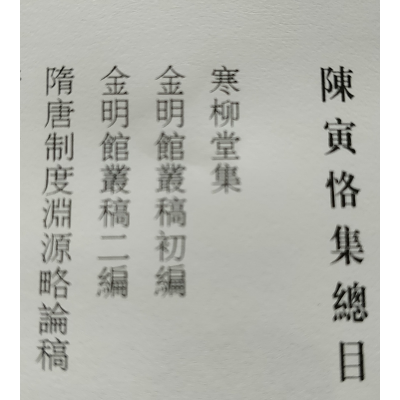 陳寅恪集總目
寒柳堂集
金明館叢稿初編
金明館叢稿二編
隋唐制度淵源略論稿